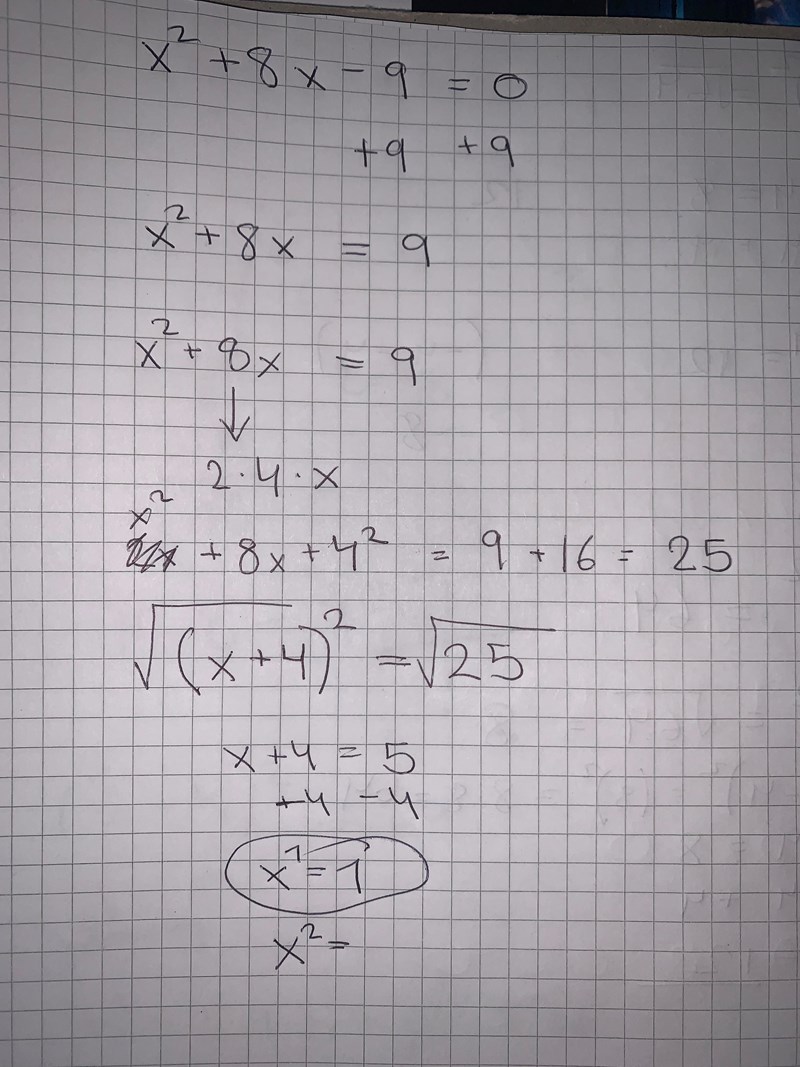 x² + 8x - 9 = 0
+9 +9
x² + 8x = 9
x² + 8x = 9
↓
2·4·x
x²
+ 8x + 4² = 9 + 16 = 25
√(x+4)² = √25
x + 4 = 5
+4 -4
x¹ = 1
x² =